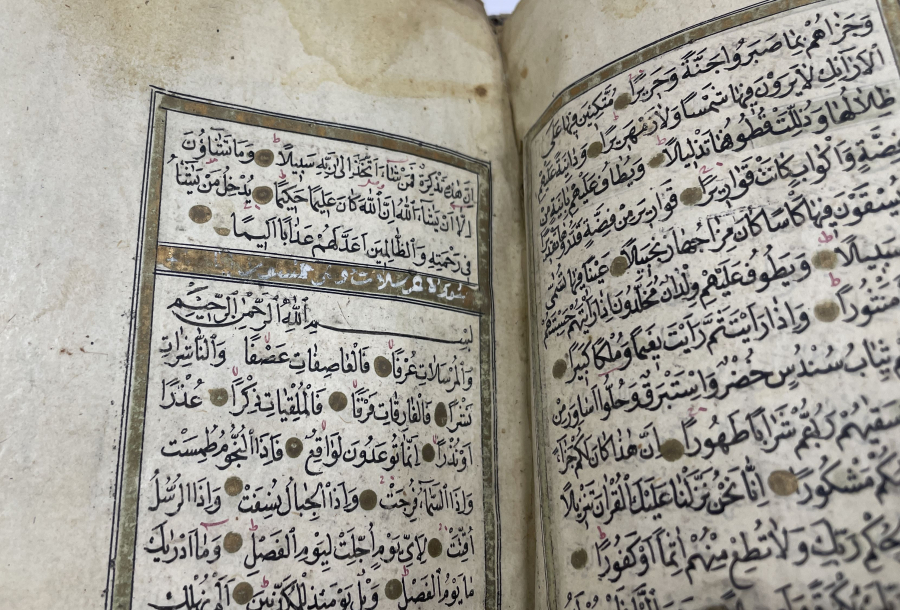 وَجَزَاهُمْ بِمَا صَبَرُوا جَنَّةً وَحَرِيرًا مُتَّكِئِينَ فِيهَا عَلَى
الْاَرَائِكِ لَا يَرَوْنَ فِيهَا شَمْسًا وَلَا زَمْهَرِيرًا وَدَانِيَةً عَلَيْهِمْ
ظِلَالُهَا وَذُلِّلَتْ قُطُوفُهَا تَذْلِيلًا وَيُطَافُ عَلَيْهِمْ بِاٰنِيَةٍ مِنْ
فِضَّةٍ وَاَكْوَابٍ كَانَتْ قَوَارِيرَا قَوَارِيرَ مِنْ فِضَّةٍ قَدَّرُوهَا تَقْدِيرًا
يُسْقَوْنَ فِيهَا كَاْسًا كَانَ مِزَاجُهَا زَنْجَبِيلًا عَيْنًا فِيهَا تُسَمَّى
سَبِيلًا وَيَطُوفُ عَلَيْهِمْ وِلْدَانٌ مُخَلَّدُونَ اِذَا رَاَيْتَهُمْ حَسِبْتَهُمْ
مَنْثُورًا وَاِذَا رَاَيْتَ ثَمَّ رَاَيْتَ نَعِيمًا وَمُلْكًا كَبِيرًا
ثِيَابُ سُنْدُسٍ خُضْرٌ وَاِسْتَبْرَقٌ وَحُلُّوا اَسَاوِرَ مِنْ
سَقٰيهُمْ رَبُّهُمْ شَرَابًا طَهُورًا اِنَّ هٰذَا كَانَ لَكُمْ جَزَاءً
مَشْكُورًا اِنَّا نَحْنُ نَزَّلْنَا عَلَيْكَ الْقُرْاٰنَ تَنْزِيلًا
لِحُكْمِ رَبِّكَ وَلَا تُطِعْ مِنْهُمْ اٰثِمًا اَوْ كَفُورًا
اِنَّ هٰذِهِ تَذْكِرَةٌ فَمَنْ شَاءَ اتَّخَذَ اِلٰى رَبِّهِ سَبِيلًا وَمَا تَشَاؤُنَ
اِلَّا اَنْ يَشَاءَ اللّٰهُ اِنَّ اللّٰهَ كَانَ عَلِيمًا حَكِيمًا يُدْخِلُ مَنْ يَشَاءُ
فِي رَحْمَتِهِ وَالظَّالِمِينَ اَعَدَّ لَهُمْ عَذَابًا اَلِيمًا
سورة المرسلات
بِسْمِ اللّٰهِ الرَّحْمٰنِ الرَّحِيمِ
وَالْمُرْسَلَاتِ عُرْفًا فَالْعَاصِفَاتِ عَصْفًا وَالنَّاشِرَاتِ
نَشْرًا فَالْفَارِقَاتِ فَرْقًا فَالْمُلْقِيَاتِ ذِكْرًا عُذْرًا
اَوْ نُذْرًا اِنَّمَا تُوعَدُونَ لَوَاقِعٌ فَاِذَا النُّجُومُ طُمِسَتْ
وَاِذَا السَّمَاءُ فُرِجَتْ وَاِذَا الْجِبَالُ نُسِفَتْ وَاِذَا الرُّسُلُ
اُقِّتَتْ لِاَيِّ يَوْمٍ اُجِّلَتْ لِيَوْمِ الْفَصْلِ وَمَا اَدْرٰيكَ
مَا يَوْمُ الْفَصْلِ وَيْلٌ يَوْمَئِذٍ لِلْمُكَذِّبِينَ اَلَمْ نُهْلِكِ